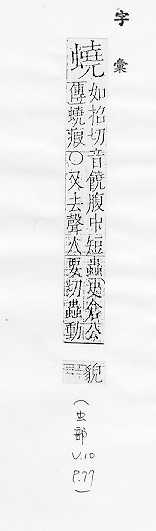 字彙
蟯
如招切音饒腹中短蟲史倉公
傳蟯瘕○又去聲人要切蟲動
貌
(虫部 V.10 P.77)